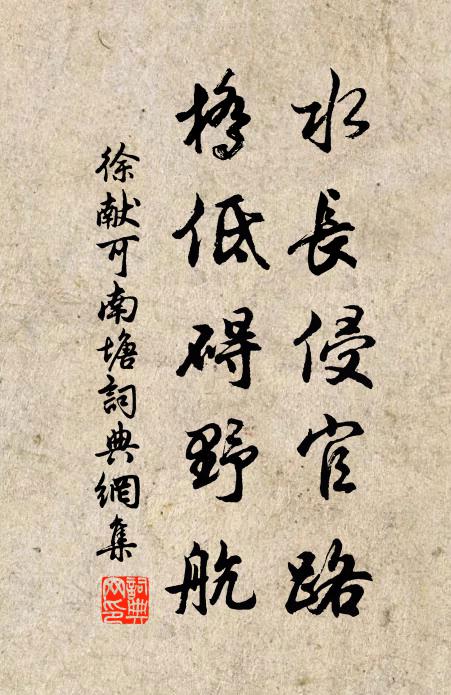 水長侵官路
橋低碍野航
徐献可南塘詞典網集
詞典網印